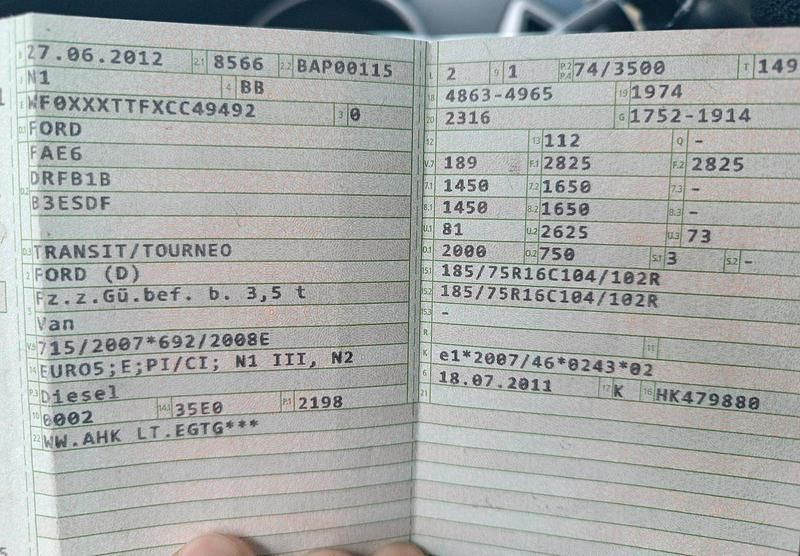 B 27.06.2012 2.1 8566 2.2 BAP00115
J N1 4 BB
E WF0XXXTTFXCC49492 3 0
D.1 FORD
FAE6
D.2 DRFB1B
B3ESDF
D.3 TRANSIT/TOURNEO
2 FORD (D)
5 Fz.z.Gü.bef. b. 3,5 t
Van
V.9 715/2007*692/2008E
14 EURO5;E;PI/CI; N1 III, N2
P.3 Diesel
10 0002 14.1 35E0 P.1 2198
22 WW.AHK LT.EGTG***
L 2 9 1 P.2 P.4 74/3500 T 149
18 4863-4965 19 1974
20 2316 G 1752-1914
12 13 112 Q -
V.7 189 F.1 2825 F.2 2825
7.1 1450 7.2 1650 7.3 -
8.1 1450 8.2 1650 8.3 -
U.1 81 U.2 2625 U.3 73
O.1 2000 O.2 750 S.1 3 S.2 -
15.1 185/75R16C104/102R
15.2 185/75R16C104/102R
15.3 -
R 11
K e1*2007/46*0243*02
6 18.07.2011 17 K 16 HK479880
21